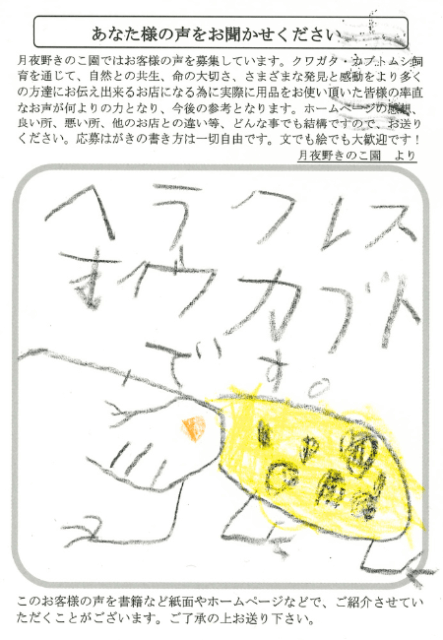 あなた様の声をお聞かせください
月夜野きのこ園ではお客様の声を募集しています。クワガタ・カブトムシ飼
育を通じて、自然との共生、命の大切さ、さまざまな発見と感動をより多く
の方達にお伝え出来るお店になる為に実際に用品をお使い頂いた皆様の率直
なお声が何よりの力となり、今後の参考となります。ホームページの感想、
良い所、悪い所、他のお店との違い等、どんな事でも結構ですので、お送り
ください。応募はがきの書き方は一切自由です。文でも絵でも大歓迎です！
月夜野きのこ園　より
ヘラクレス
オオカブト
です。
このお客様の声を書籍など紙面やホームページなどで、ご紹介させてい
ただくことがございます。ご了承の上お送り下さい。